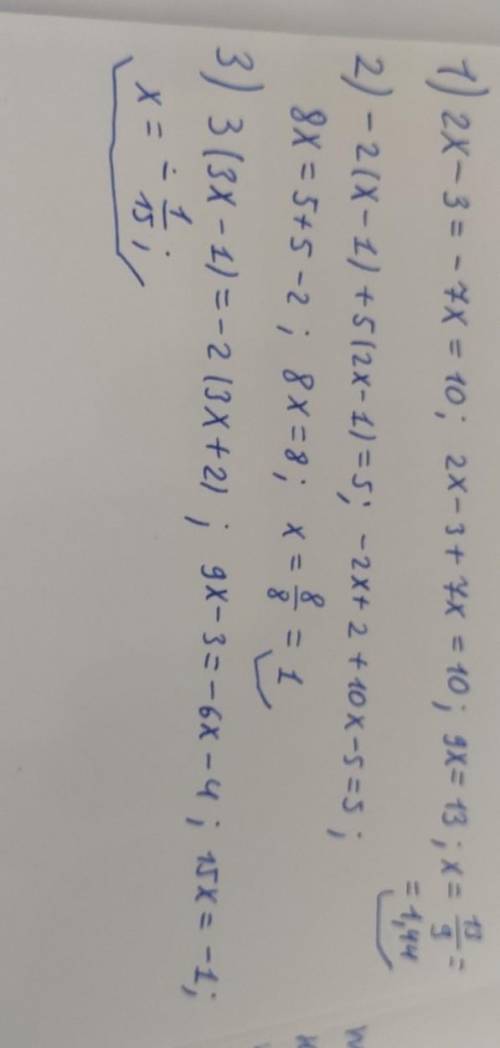 1) 2x - 3 = - 7x = 10; 2x - 3 + 7x = 10; 9x = 13; x = 13/9 =
= 1,44
2) - 2(x - 1) + 5(2x - 1) = 5; - 2x + 2 + 10x - 5 = 5;
8x = 5 + 5 - 2; 8x = 8; x = 8/8 = 1
3) 3(3x - 1) = - 2(3x + 2); 9x - 3 = - 6x - 4; 15x = - 1;
x = - 1/15;